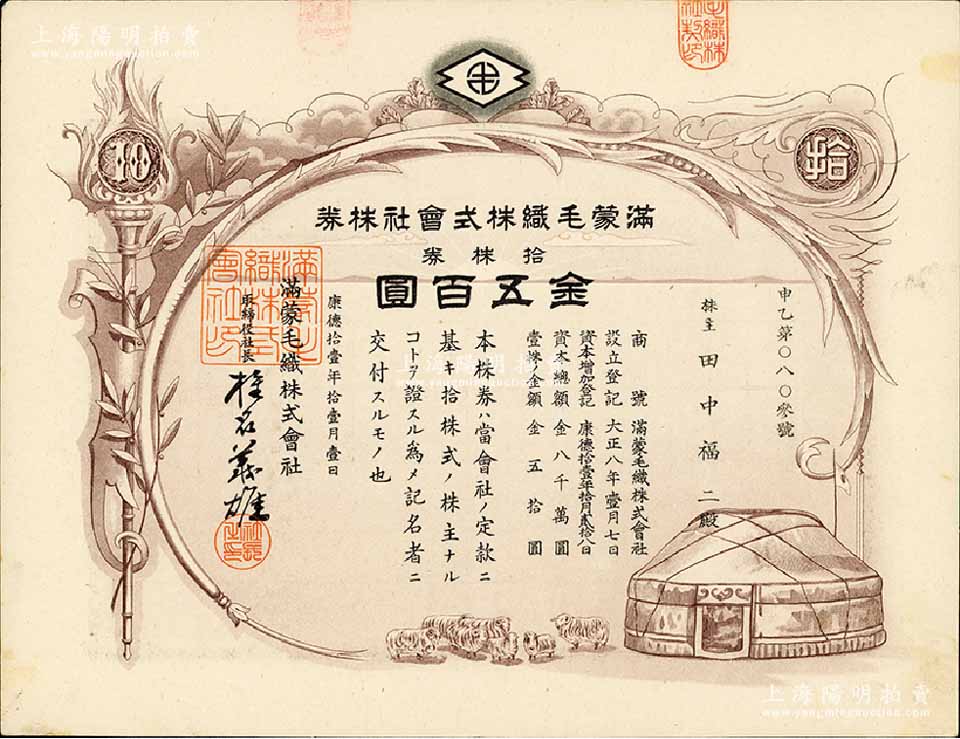 上海陽明拍賣
www.yangmingauction.com
織株
社契印
10
拾
滿蒙毛織株式會社株券
拾株券
金五百圓
申乙第〇八〇參號
株主 田中福二殿
商號 滿蒙毛織株式會社
設立登記 大正八年壹月七日
資本增加登記 康德拾壹年拾月貳拾八日
資本總額 金八千萬圓
壹株ノ金額 金五拾圓
本株券ハ當會社ノ定款ニ
基キ拾株式ノ株主ナル
コトヲ證スル爲メ記名者ニ
交付スルモノ也
康德拾壹年拾壹月壹日
滿蒙毛織株式會社
取締役社長 椎名義雄
滿蒙毛
織株式
會社印
上海陽明拍賣
www.yangmingauction.com